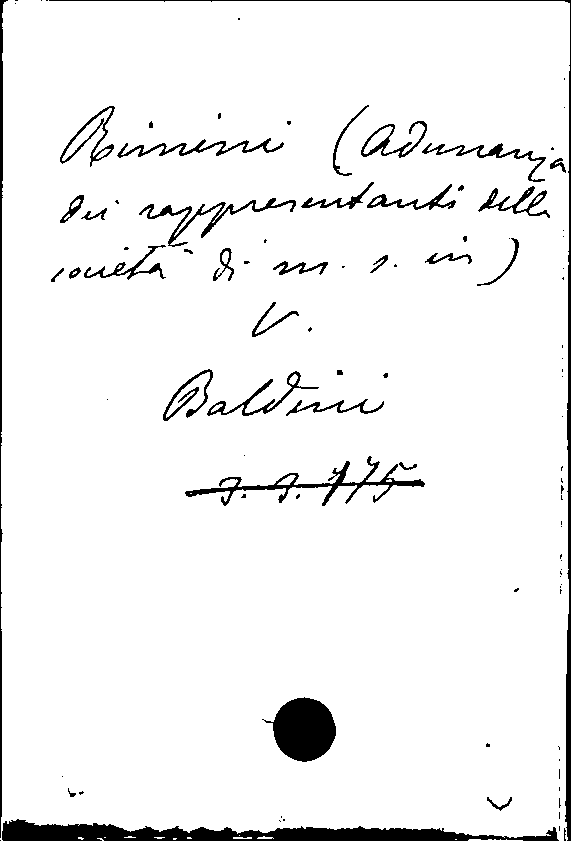 Rimini (Adunanza
dei rappresentanti delle
società di m. s. in)
V.
Baldini
3. 3. 175